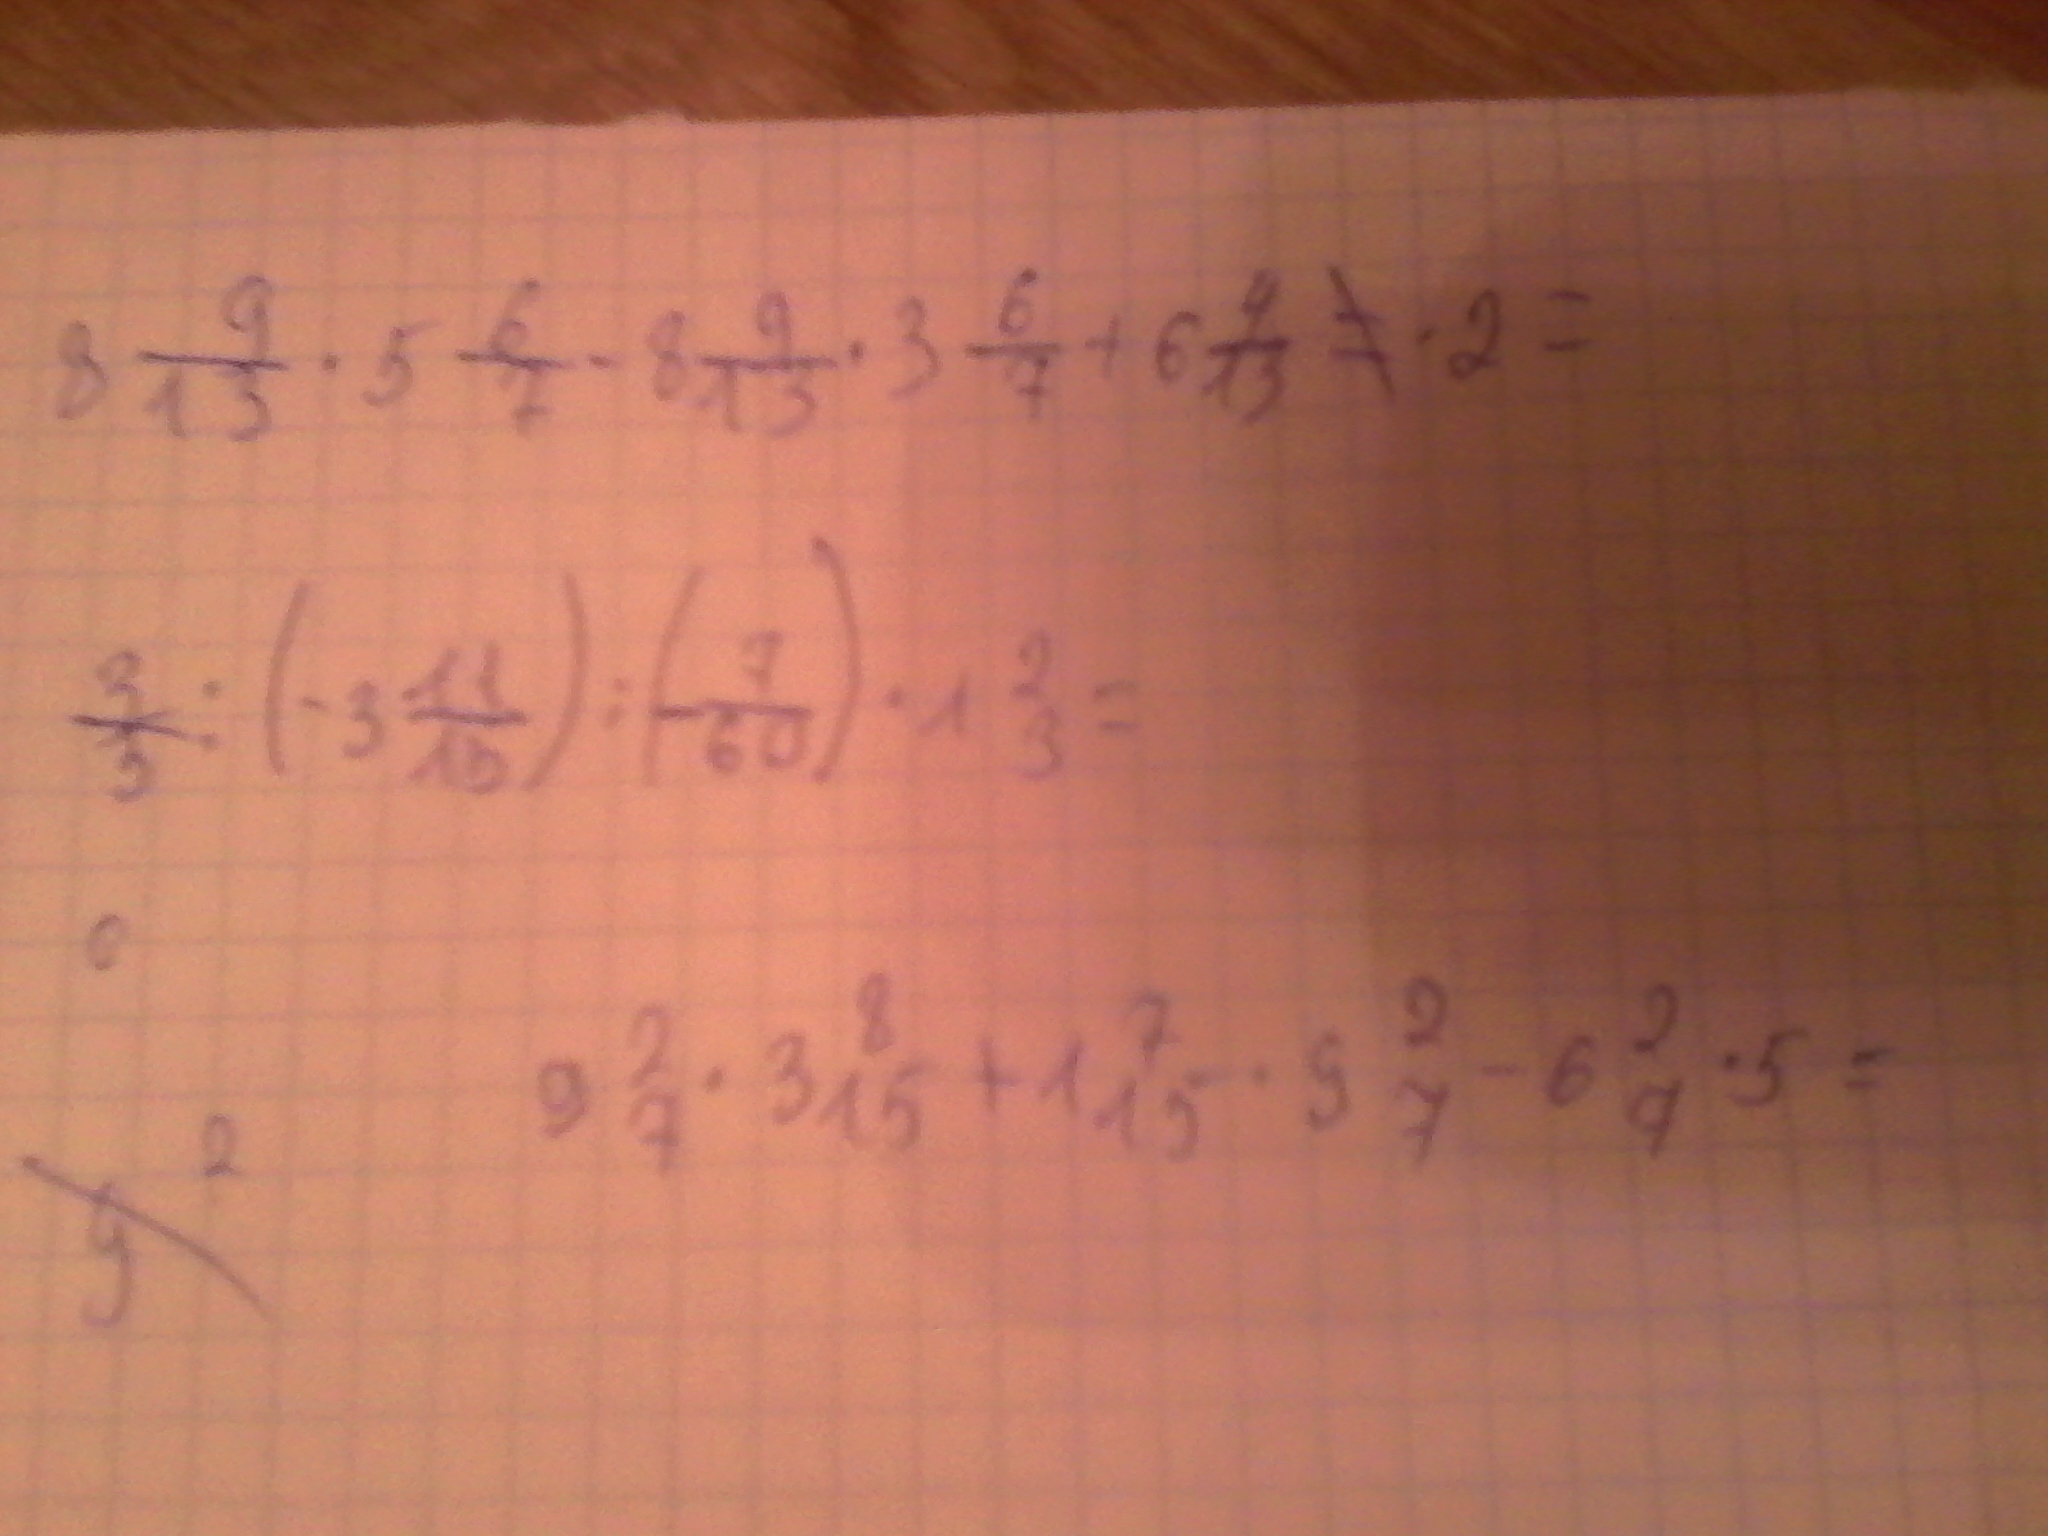 8 9/13 · 5 6/7 - 8 9/13 · 3 6/7 + 6 4/13 · 2 =
3/5 : (-3 11/15) : (-7/60) · 1 2/3 =
9 2/7 · 3 8/15 + 1 7/15 · 9 2/7 - 6 2/7 · 5 =
2